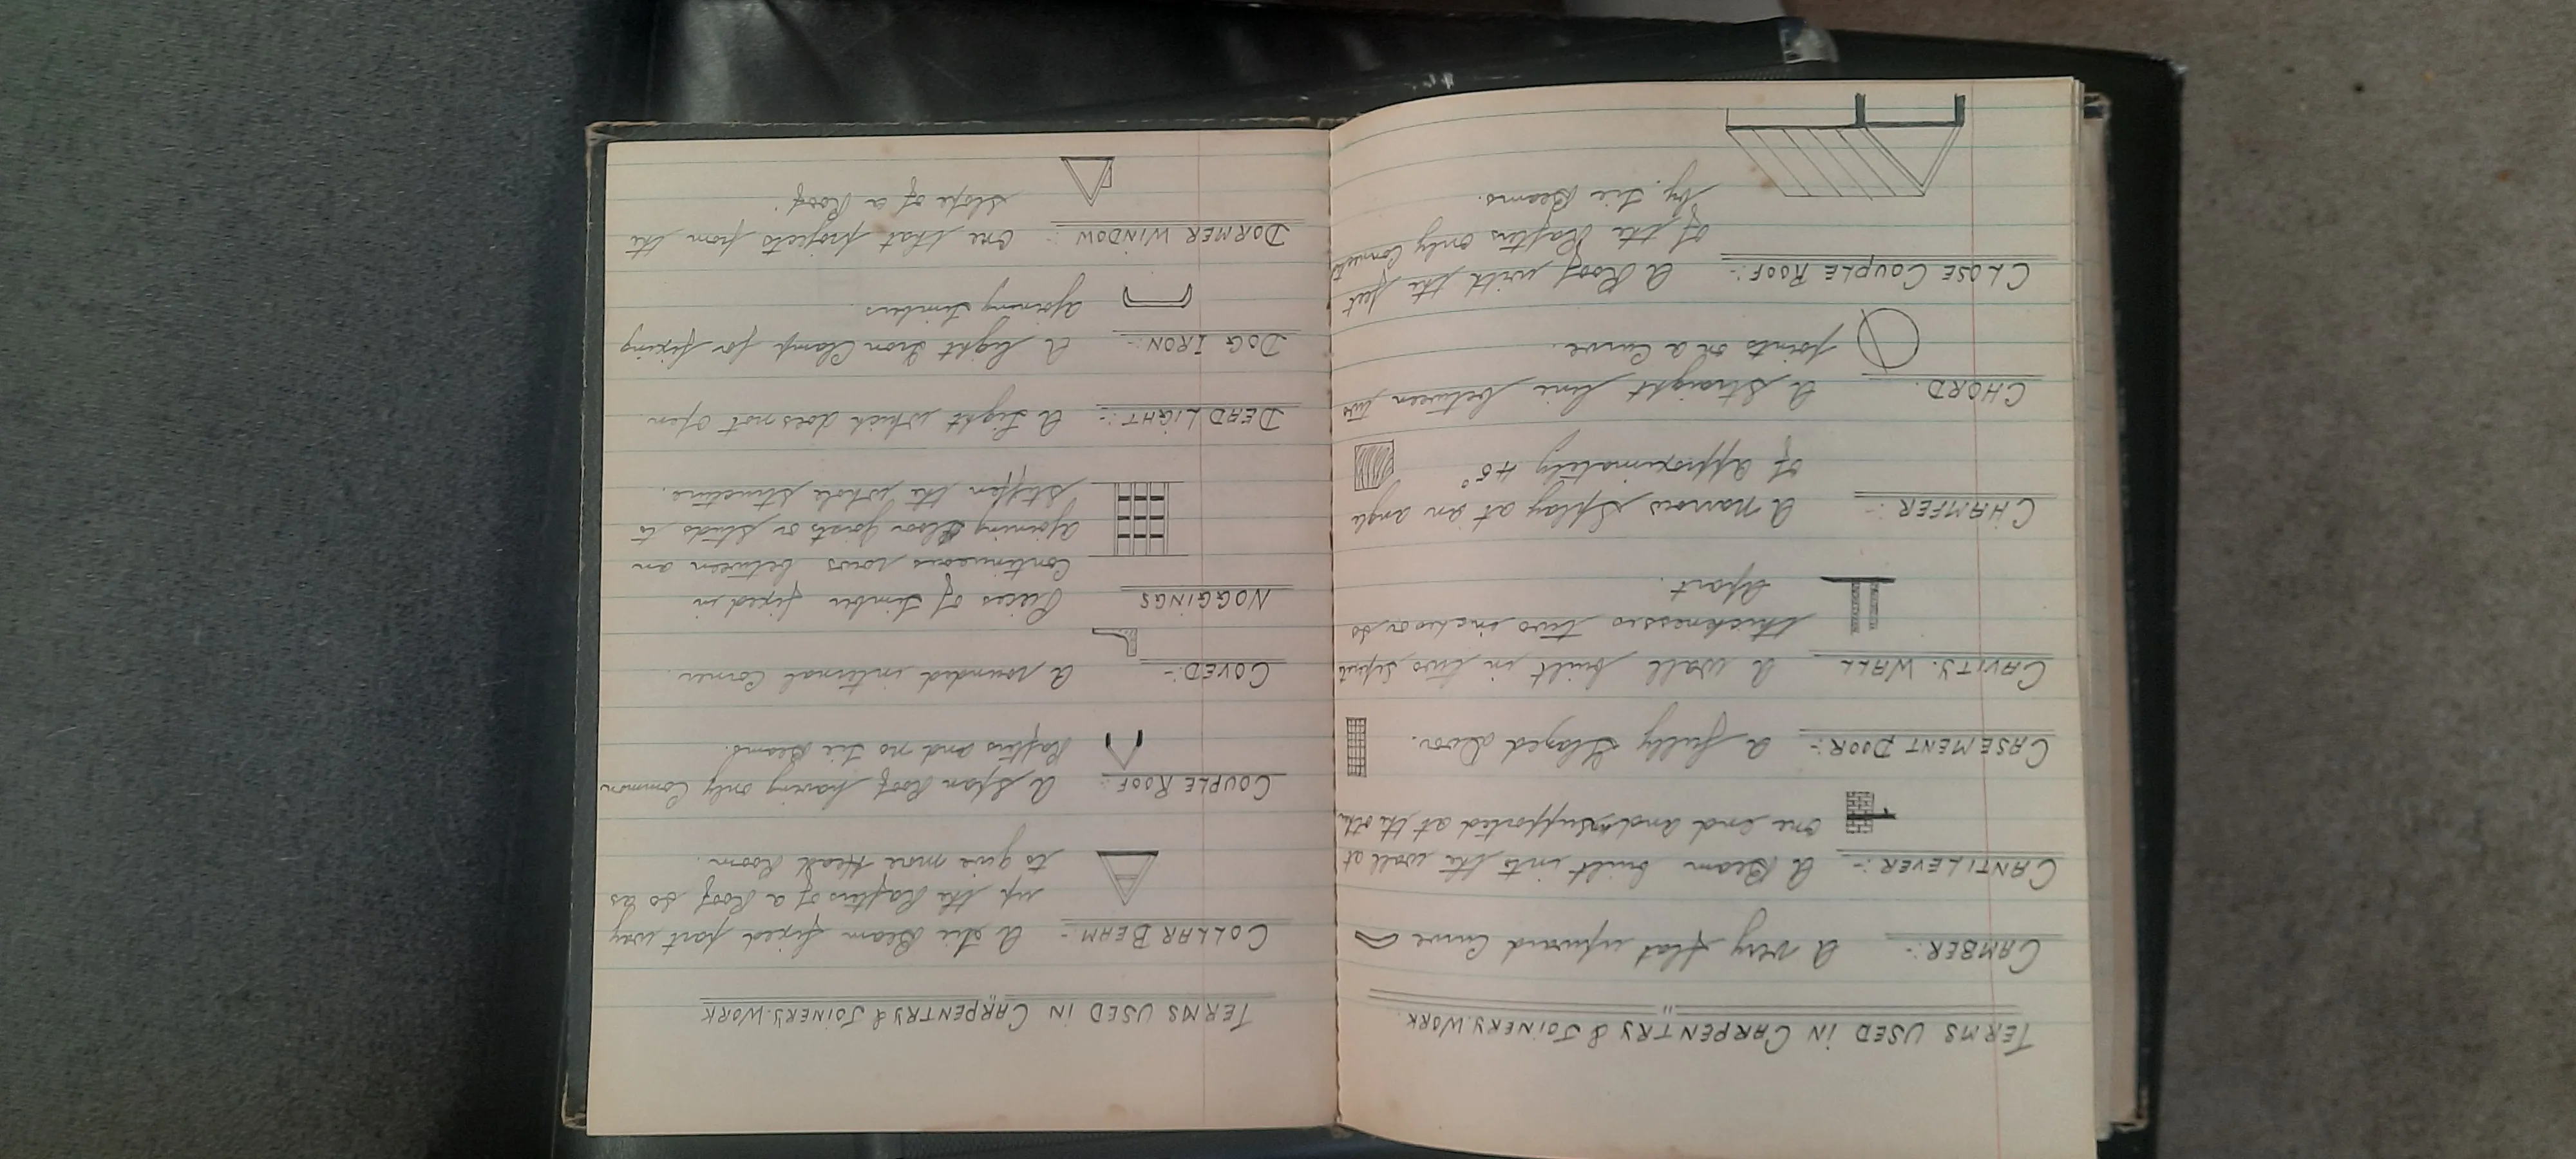 TERMS USED IN CARPENTRY & JOINERY.WORK.
CAMBER:- A very flat upward Curve
CANTILEVER:- A Beam built into the wall at
one end and unsupported at the other
CASEMENT DOOR:- A fully Glazed door.
CAVITY. WALL A wall built in two
thicknesses two inches or so
Apart.
CHAMFER:- A narrow Splay at an angle
of Approximately 45°
CHORD. A Straight line between two
points on a Curve.
CLOSE COUPLE ROOF:- A Roof with the feet
of the Rafters only
by. tie Beams.
TERMS USED IN CARPENTRY & JOINERY.WORK
COLLAR BEAM- A tie Beam fixed part way
up the Rafters of a Roof so as
to give more Head Room.
COUPLE ROOF:- A Span Roof having only Common
Rafters and no tie Beams.
COVED:- A rounded internal Corner.
NOGGINGS Pieces of timber fixed in
Continueous rows between an
ajoining floor joists or studs to
stiffen the whole structure.
DEAD LIGHT:- A Light which does not open.
DOG IRON:- A light Iron Clamp for fixing
ajoining timbers.
DORMER WINDOW:- One that projects from the
slope of a Roof.